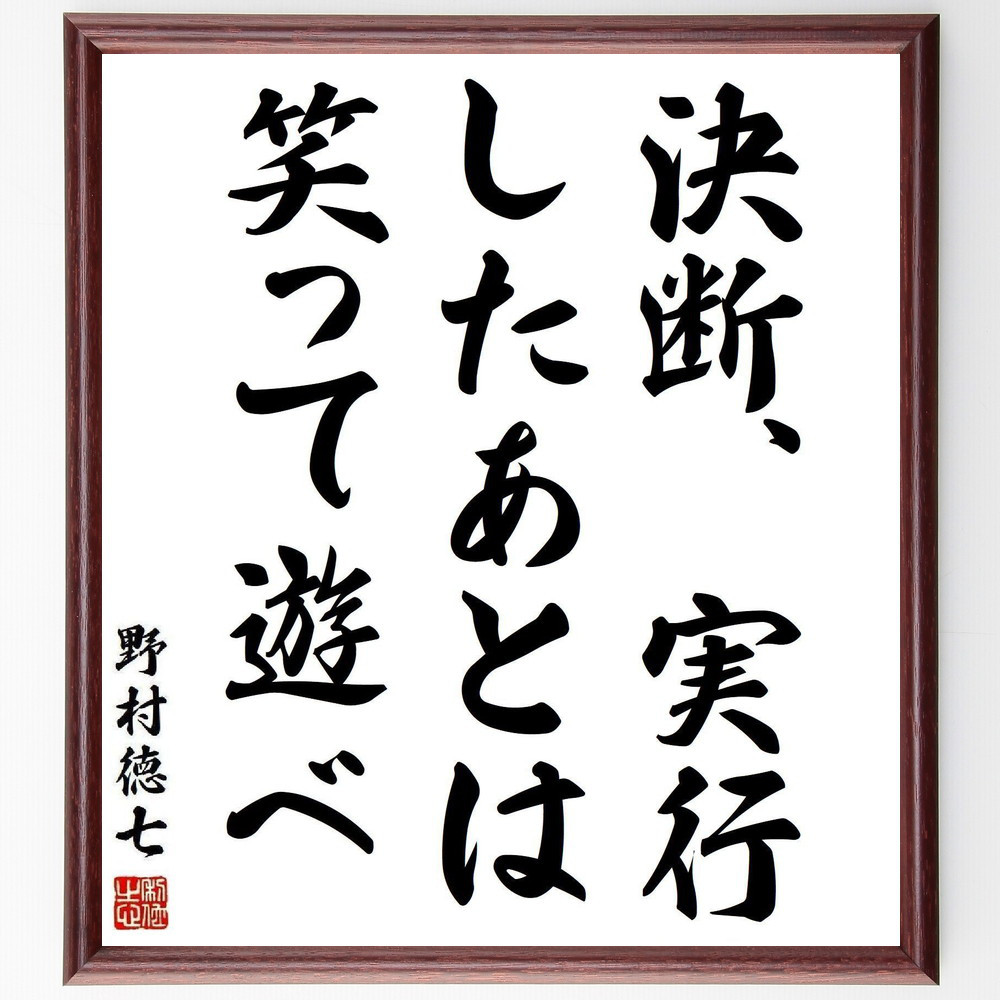 決断、実行
したあとは
笑って遊べ
野村徳七